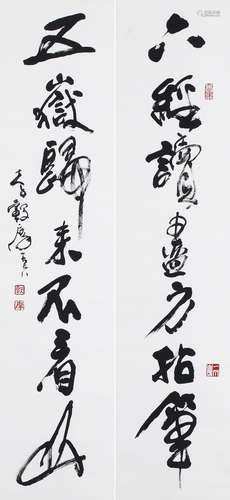 六經讀盡方拈筆
五嶽歸來不看山